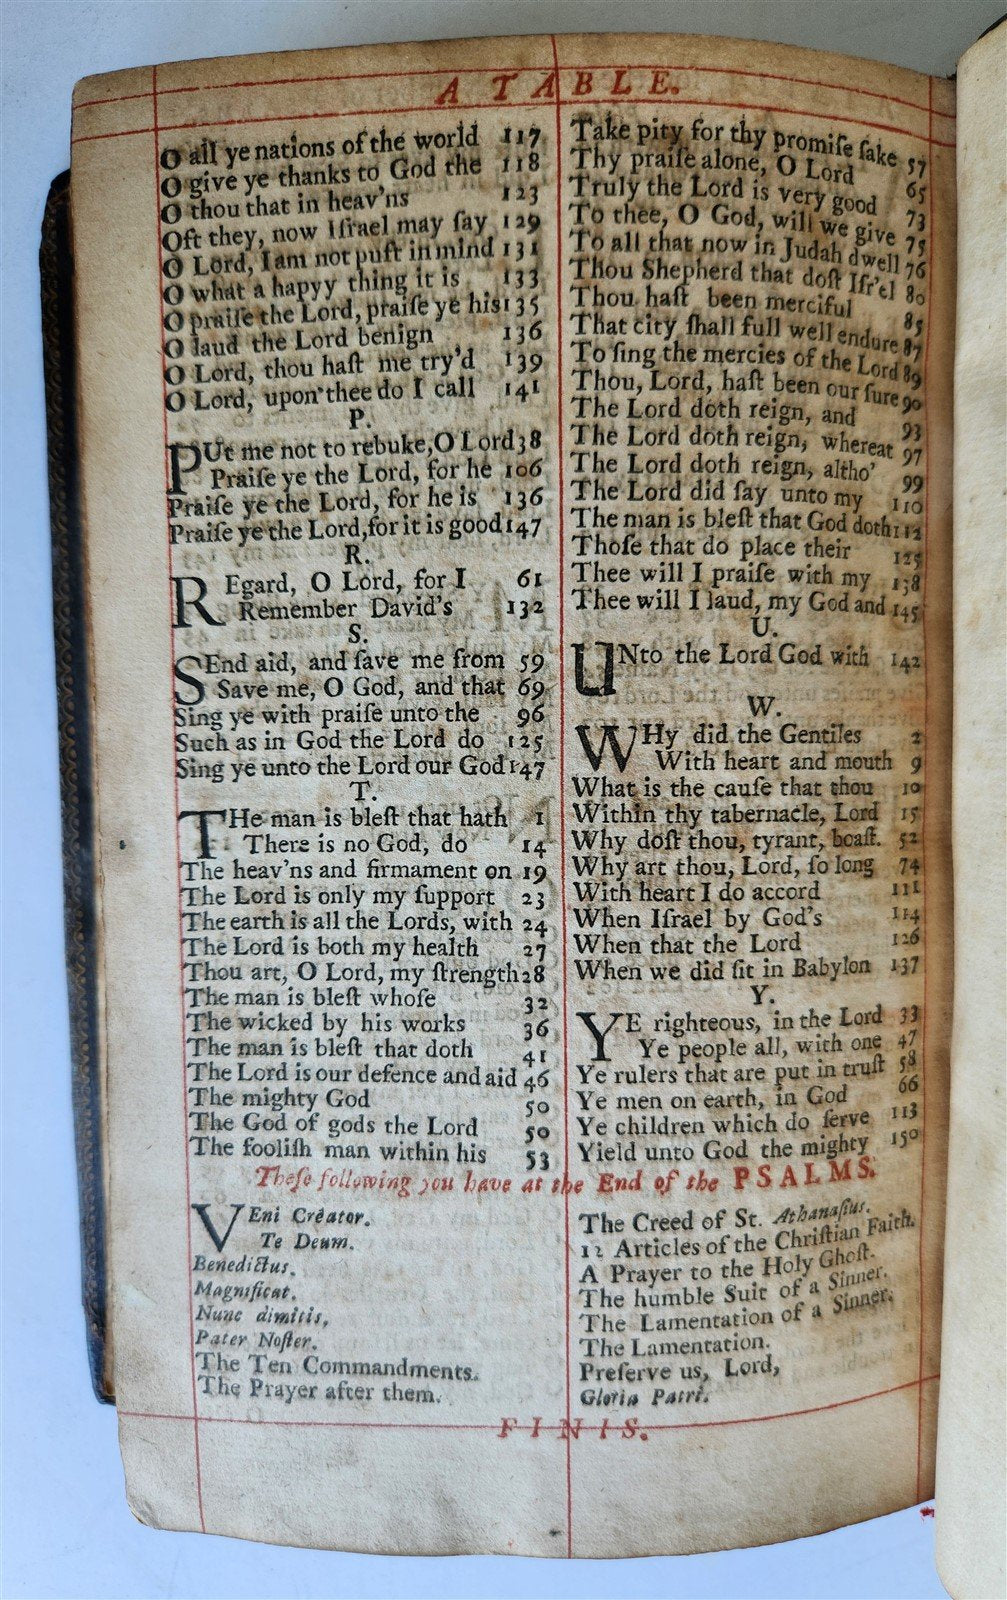 A TABLE.
O all ye nations of the world 117
O give ye thanks to God the 118
O thou that in heav'ns 123
Oft they, now Iſrael may ſay 129
O Lord, I am not puft in mind 131
O what a hapyy thing it is 133
O praiſe the Lord, praiſe ye his 135
O laud the Lord benign 136
O Lord, thou haſt me try'd 139
O Lord, upon thee do I call 141
P.
PUt me not to rebuke, O Lord 38
Praiſe ye the Lord, for he 106
Praiſe ye the Lord, for he is 136
Praiſe ye the Lord, for it is good 147
R.
REgard, O Lord, for I 61
Remember David's 132
S.
SEnd aid, and ſave me from 59
Save me, O God, and that 69
Sing ye with praiſe unto the 96
Such as in God the Lord do 125
Sing ye unto the Lord our God 147
T.
THe man is bleſt that hath 1
There is no God, do 14
The heav'ns and firmament on 19
The Lord is only my ſupport 23
The earth is all the Lords, with 24
The Lord is both my health 27
Thou art, O Lord, my ſtrength 28
The man is bleſt whoſe 32
The wicked by his works 36
The man is bleſt that doth 41
The Lord is our defence and aid 46
The mighty God 50
The God of gods the Lord 50
The fooliſh man within his 53
Take pity for thy promiſe ſake 57
Thy praiſe alone, O Lord 65
Truly the Lord is very good 73
To thee, O God, will we give 75
To all that now in Judah dwell 76
Thou Shepherd that doſt Iſr'el 80
Thou haſt been merciful 85
That city ſhall full well endure 87
To ſing the mercies of the Lord 89
Thou, Lord, haſt been our ſure 90
The Lord doth reign, and 93
The Lord doth reign, whereat 97
The Lord doth reign, altho' 99
The Lord did ſay unto my 110
The man is bleſt that God doth 112
Thoſe that do place their 125
Thee will I praiſe with my 138
Thee will I laud, my God and 145
U.
UNto the Lord God with 142
W.
WHy did the Gentiles 2
With heart and mouth 9
What is the cauſe that thou 10
Within thy tabernacle, Lord 15
Why doſt thou, tyrant, boaſt. 52
Why art thou, Lord, ſo long 74
With heart I do accord 111
When Iſrael by God's 114
When that the Lord 126
When we did ſit in Babylon 137
Y.
YE righteous, in the Lord 33
Ye people all, with one 47
Ye rulers that are put in truſt 58
Ye men on earth, in God 66
Ye children which do ſerve 113
Yield unto God the mighty 150
Theſe following you have at the End of the PSALMS.
VEni Creator.
Te Deum.
Benedictus.
Magnificat.
Nunc dimitis,
Pater Noſter.
The Ten Commandments.
The Prayer after them.
The Creed of St. Athanaſius.
12 Articles of the Chriſtian Faith.
A Prayer to the Holy Ghoſt.
The humble Suit of a Sinner.
The Lamentation of a Sinner.
The Lamentation.
Preſerve us, Lord,
Gloria Patri.
FINIS.